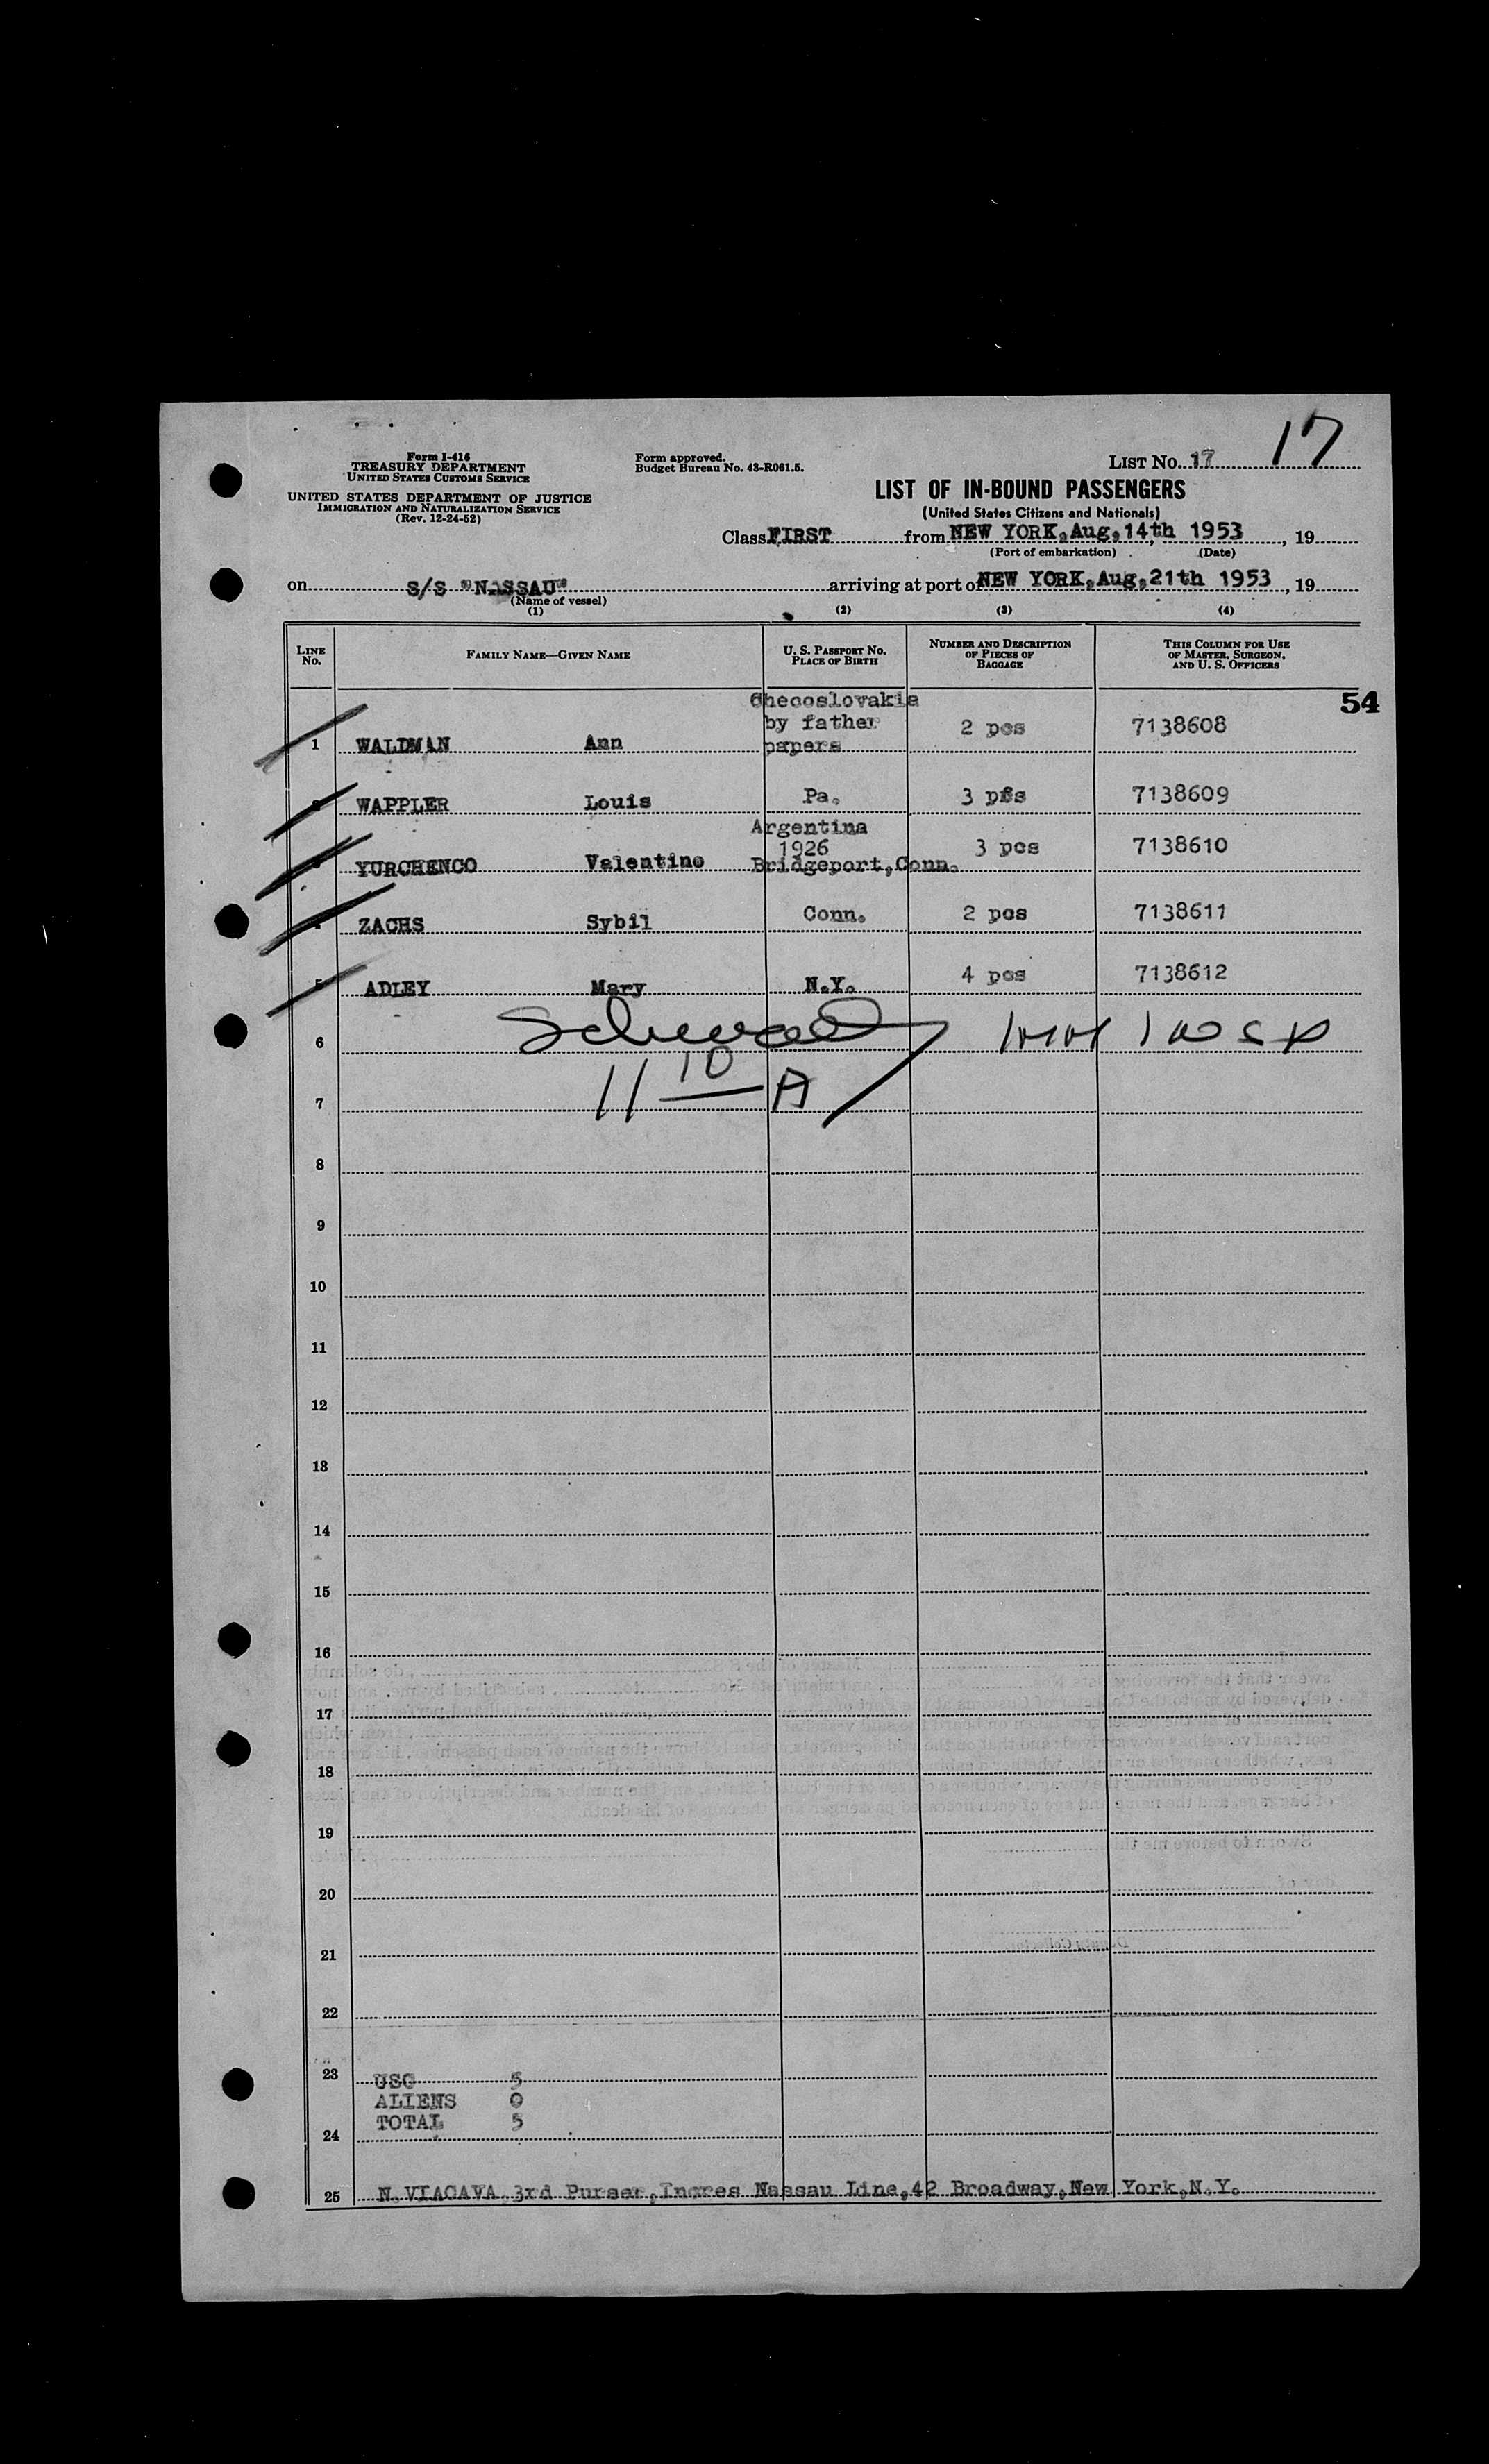 17
Form I-416
TREASURY DEPARTMENT
UNITED STATES CUSTOMS SERVICE
UNITED STATES DEPARTMENT OF JUSTICE
IMMIGRATION AND NATURALIZATION SERVICE
(Rev. 12-24-52)
Form approved.
Budget Bureau No. 43-R061.5.
LIST NO. 17
LIST OF IN-BOUND PASSENGERS
(United States Citizens and Nationals)
Class FIRST from NEW YORK, Aug, 14,th 1953, 19
(Port of embarkation) (Date)
on S/S "NASSAU" arriving at port of NEW YORK, Aug, 21th 1953, 19
(Name of vessel)
(1) (2) (3) (4)
LINE NO. FAMILY NAME—GIVEN NAME U. S. PASSPORT NO. PLACE OF BIRTH NUMBER AND DESCRIPTION OF PIECES OF BAGGAGE THIS COLUMN FOR USE OF MASTER, SURGEON, AND U. S. OFFICERS
54
1 WALDMAN Ann Checoslovakia by father papers 2 pcs 7138608
WAPPLER Louis Pa. 3 pcs 7138609
YURCHENCO Valentino Argentina 1926 Bridgeport, Conn. 3 pcs 7138610
ZACHS Sybil Conn. 2 pcs 7138611
5 ADLEY Mary N.Y. 4 pcs 7138612
6
11 10 A
7
8
9
10
11
12
13
14
15
16
17
18
19
20
21
22
23 USC 5
ALIENS 0
TOTAL 5
24
25 N. VIACAVA 3rd Purser, Incres Nassau Line, 42 Broadway, New York, N.Y.